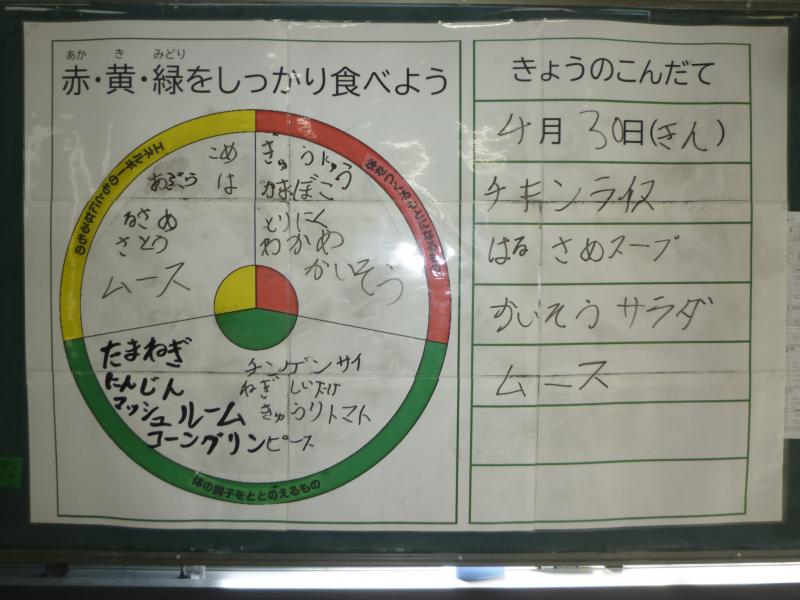 赤・黄・緑をしっかり食べよう
あか き みどり
エネルギーのもとになるもの
こめ
あぶら
はるさめ
さとう
ムース
ぎゅうにゅう
かまぼこ
とりにく
わかめ
かいそう
たまねぎ
にんじん
マッシュルーム
コーングリンピース
チンゲンサイ
ねぎ しいたけ
きゅうりトマト
体の調子をととのえるもの
きょうのこんだて
4月30日(きん)
チキンライス
はるさめスープ
かいそうサラダ
ムース